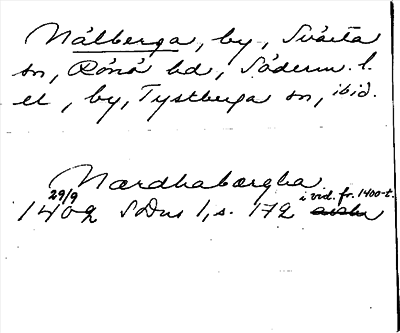 Nålberga, by, Svärta
sn, Rönö hd, Söderm. l.
el, by, Tystberga sn, ibid.
Nærdhabærgha
29/9 i vid. fr. 1400-t.
1402 SDns 1, s. 172